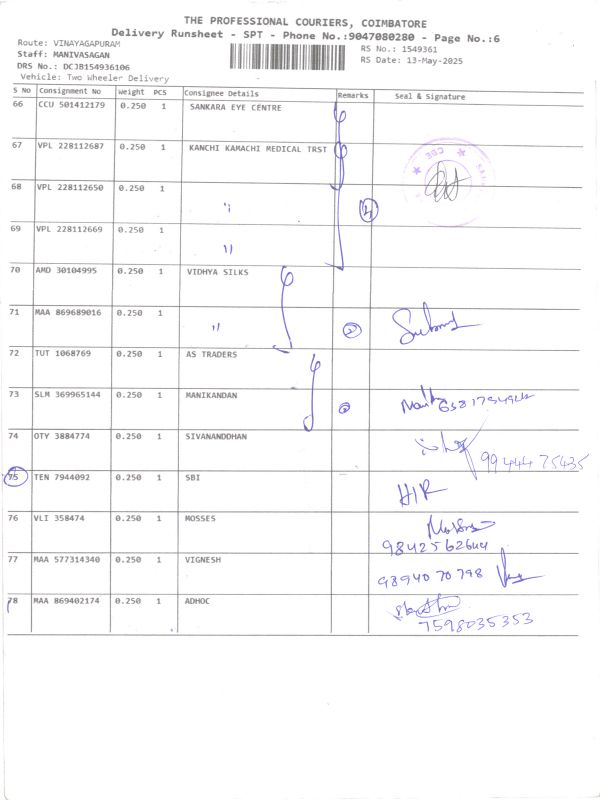 THE PROFESSIONAL COURIERS, COIMBATORE
Delivery Runsheet - SPT - Phone No.:9047080280 - Page No.:6
Route: VINAYAGAPURAM
RS No.: 1549361
Staff: MANIVASAGAN
RS Date: 13-May-2025
DRS No.: DCJB154936106
Vehicle: Two Wheeler Delivery
S No Consignment No Weight PCS Consignee Details Remarks Seal & Signature
66 CCU 501412179 0.250 1 SANKARA EYE CENTRE
67 VPL 228112687 0.250 1 KANCHI KAMACHI MEDICAL TRST
CBE
68 VPL 228112650 0.250 1 " 4
69 VPL 228112669 0.250 1 "
70 AMD 30104995 0.250 1 VIDHYA SILKS
71 MAA 869689016 0.250 1 " 2
72 TUT 1068769 0.250 1 AS TRADERS
73 SLM 369965144 0.250 1 MANIKANDAN 2
74 OTY 3884774 0.250 1 SIVANANDDHAN
99444 75435
75 TEN 7944092 0.250 1 SBI
H/R
76 VLI 358474 0.250 1 MOSSES
9842562644
77 MAA 577314340 0.250 1 VIGNESH
9894070798
78 MAA 869402174 0.250 1 ADHOC
7598035353